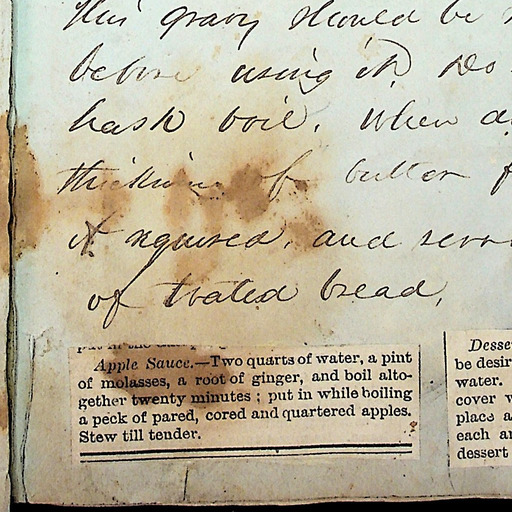 this gravy should be
before using it) Do
hash boil. When
thickening of butter
required, and serve
of toasted bread,
Apple Sauce.—Two quarts of water, a pint
of molasses, a root of ginger, and boil alto-
gether twenty minutes; put in while boiling
a peck of pared, cored and quartered apples.
Stew till tender.
Desse
be desir
water.
cover w
place a
each a
dessert